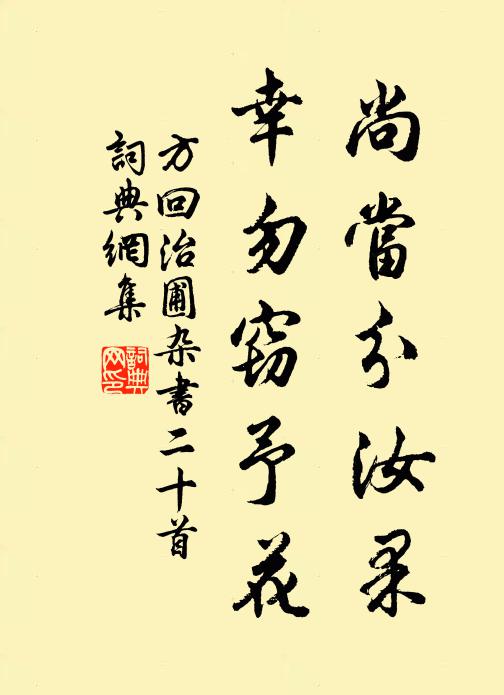 尚當分汝果
幸勿窃予花
方回治圃杂書二十首
詞典網集
詞典网印